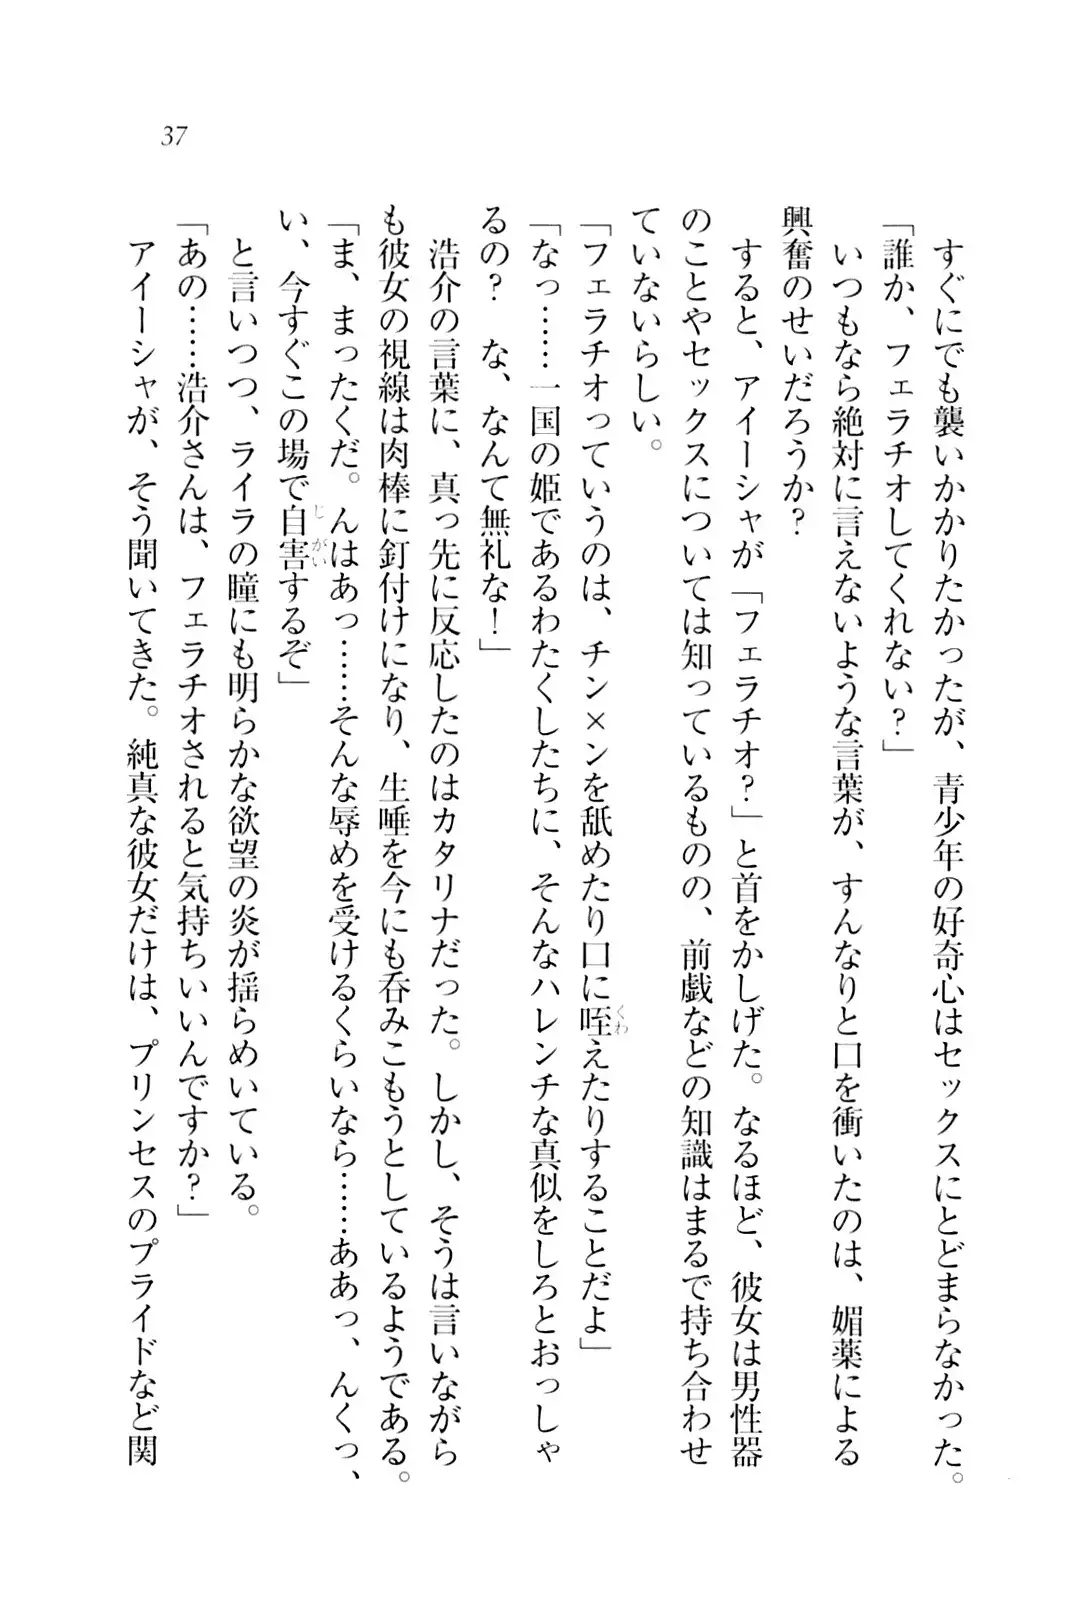 37
すぐにでも襲いかかりたかったが、青少年の好奇心はセックスにとどまらなかった。
「誰か、フェラチオしてくれない？」
いつもなら絶対に言えないような言葉が、すんなりと口を衝いたのは、媚薬による
興奮のせいだろうか？
すると、アイーシャが「フェラチオ？」と首をかしげた。なるほど、彼女は男性器
のことやセックスについては知っているものの、前戯などの知識はまるで持ち合わせ
ていないらしい。
「フェラチオっていうのは、チン×ンを舐めたり口に咥えたりすることだよ」
「なっ……一国の姫であるわたくしたちに、そんなハレンチな真似をしろとおっしゃ
るの？　な、なんて無礼な！」
浩介の言葉に、真っ先に反応したのはカタリナだった。しかし、そうは言いながら
も彼女の視線は肉棒に釘付けになり、生唾を今にも呑みこもうとしているようである。
「ま、まったくだ。んはあっ……そんな辱めを受けるくらいなら……ああっ、んくっ、
い、今すぐこの場で自害するぞ」
と言いつつ、ライラの瞳にも明らかな欲望の炎が揺らめいている。
「あの……浩介さんは、フェラチオされると気持ちいいんですか？」
アイーシャが、そう聞いてきた。純真な彼女だけは、プリンセスのプライドなど関